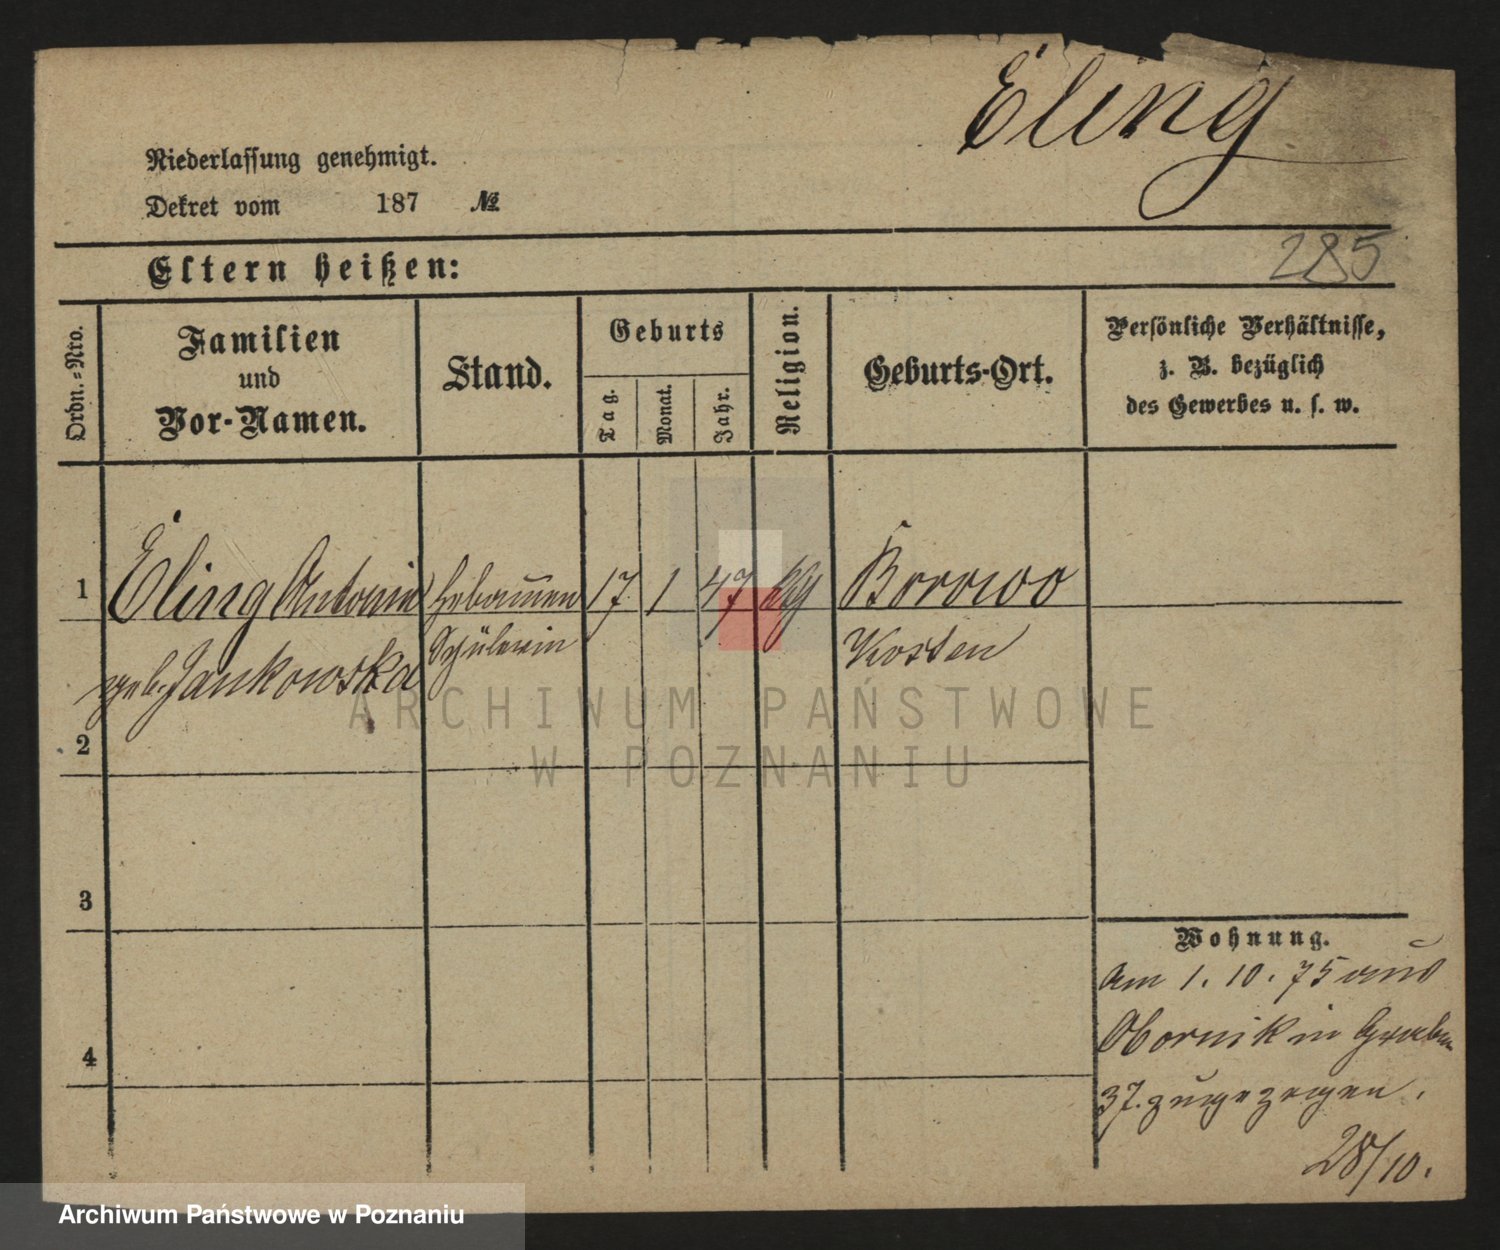 Eling
Niederlassung genehmigt.
Dekret vom 187 №
285
Eltern heißen:
Ordn.-Nro.
Familien
und
Vor-Namen.
Stand.
Geburts
Tag.
Monat.
Jahr.
Religion.
Geburts-Ort.
Persönliche Verhältnisse,
z. B. bezüglich
des Gewerbes u. s. w.
1 Eling Antonie Hebammen 17 1 47 kg Borowo
geb. Jankowska Schülerin Kosten
2
3
4
Wohnung.
Am 1. 10. 75 aus
Obornik in Graben
37. zugezogen.
28/10.
ARCHIWUM PAŃSTWOWE
W POZNANIU
Archiwum Państwowe w Poznaniu